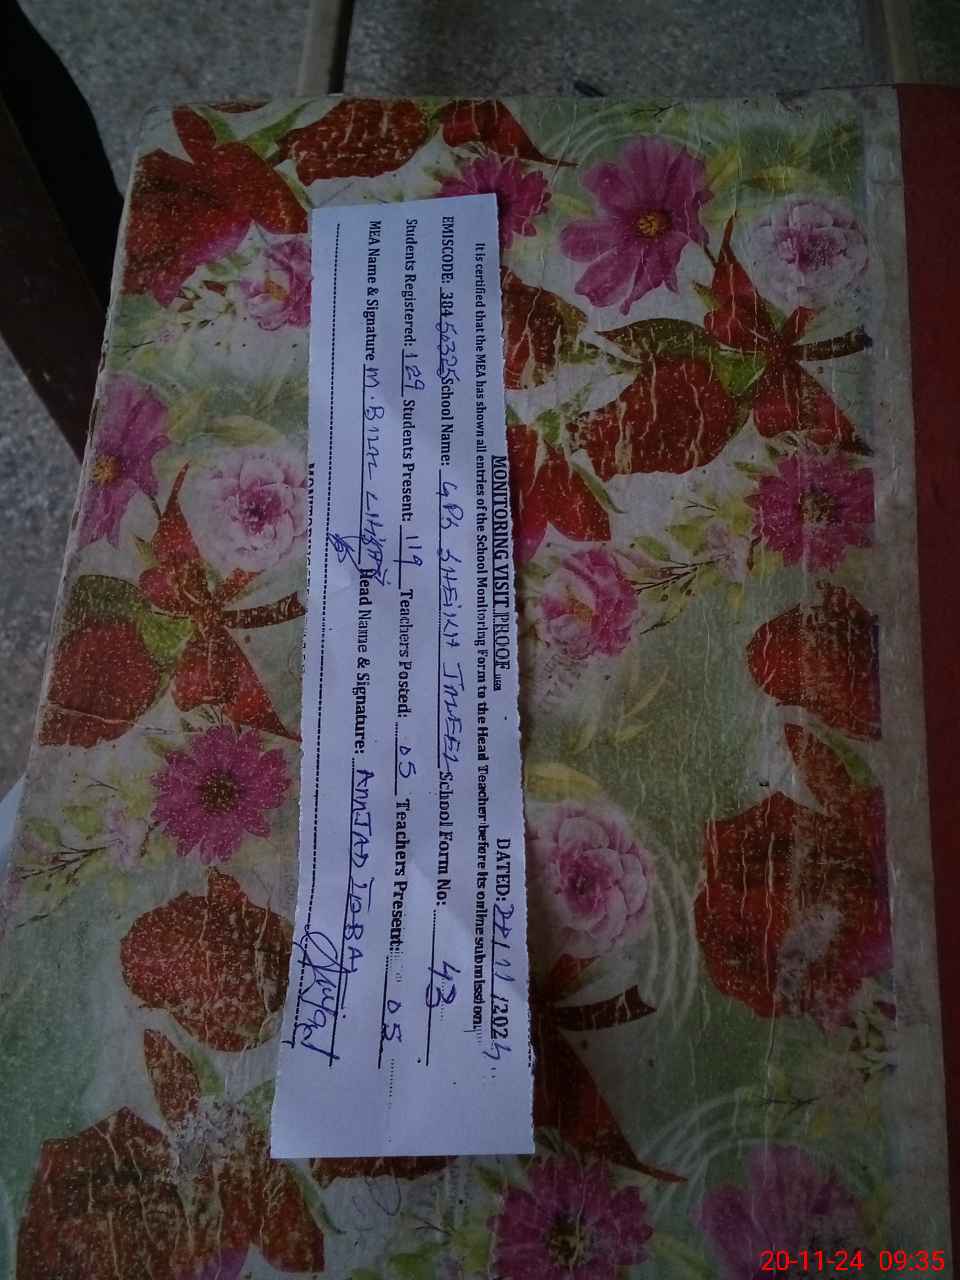 MONITORING VISIT PROOF DATED: /11/2024
It is certified that the MEA has shown all entries of the School Monitoring Form to the Head Teacher before its online submission.
EMISCODE: 38450325 School Name: GPS SHEIKH JMEEL School Form No: 43
Students Registered: 129 Students Present: 119 Teachers Posted: 05 Teachers Present: 05
MEA Name & Signature M. Head Name & Signature: AMJAD IQBAL
20-11-24 09:35